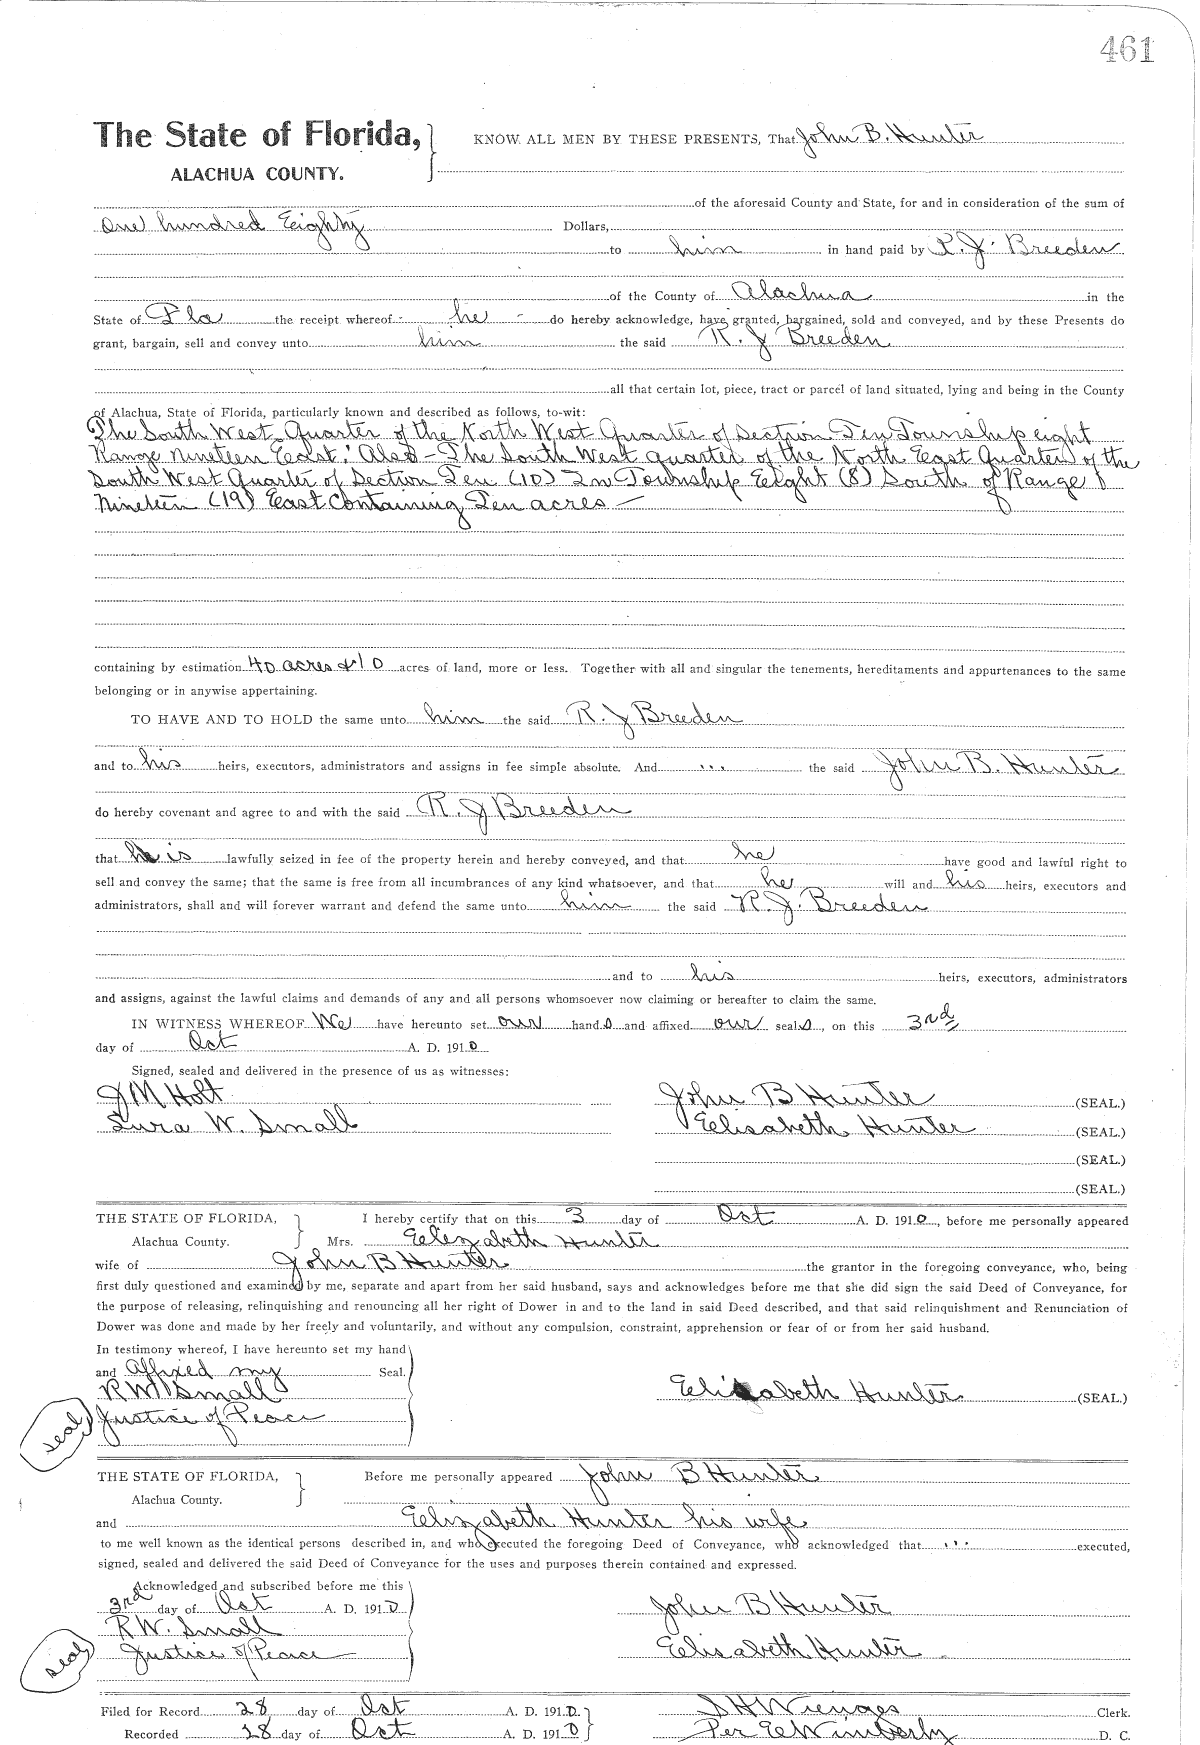 461
The State of Florida, KNOW ALL MEN BY THESE PRESENTS, That John B. Hunter
ALACHUA COUNTY.
of the aforesaid County and State, for and in consideration of the sum of
One hundred Eighty Dollars,
to him in hand paid by R. J. Breeden
of the County of Alachua in the
State of Fla the receipt whereof - he - do hereby acknowledge, have granted, bargained, sold and conveyed, and by these Presents do
grant, bargain, sell and convey unto him the said R. J Breeden
all that certain lot, piece, tract or parcel of land situated, lying and being in the County
of Alachua, State of Florida, particularly known and described as follows, to-wit:
The South West Quarter of the North West Quarter of Section Ten Township eight
Range Nineteen East. Also - The South West quarter of the North East Quarter of the
South West Quarter of Section Ten (10) In Township Eight (8) South of Range
Nineteen (19) East Containing Ten acres -
containing by estimation 40 acres & 10 acres of land, more or less. Together with all and singular the tenements, hereditaments and appurtenances to the same
belonging or in anywise appertaining.
TO HAVE AND TO HOLD the same unto him the said R. J Breeden
and to his heirs, executors, administrators and assigns in fee simple absolute. And ... the said John B. Hunter
do hereby covenant and agree to and with the said R. J Breeden
that he is lawfully seized in fee of the property herein and hereby conveyed, and that he have good and lawful right to
sell and convey the same; that the same is free from all incumbrances of any kind whatsoever, and that he will and his heirs, executors and
administrators, shall and will forever warrant and defend the same unto him the said R. J. Breeden
and to his heirs, executors, administrators
and assigns, against the lawful claims and demands of any and all persons whomsoever now claiming or hereafter to claim the same.
IN WITNESS WHEREOF We have hereunto set our hands and affixed our seals, on this 3rd
day of Oct A. D. 1910
Signed, sealed and delivered in the presence of us as witnesses:
J M Holt John B Hunter (SEAL.)
Lura W. Small Elisabeth Hunter (SEAL.)
(SEAL.)
(SEAL.)
THE STATE OF FLORIDA, I hereby certify that on this 3 day of Oct A. D. 1910, before me personally appeared
Alachua County. Mrs. Elizabeth Hunter
wife of John B Hunter the grantor in the foregoing conveyance, who, being
first duly questioned and examined by me, separate and apart from her said husband, says and acknowledges before me that she did sign the said Deed of Conveyance, for
the purpose of releasing, relinquishing and renouncing all her right of Dower in and to the land in said Deed described, and that said relinquishment and Renunciation of
Dower was done and made by her freely and voluntarily, and without any compulsion, constraint, apprehension or fear of or from her said husband.
In testimony whereof, I have hereunto set my hand
and Affixed my Seal.
R W Small Elizabeth Hunter (SEAL.)
seal Justice of Peace
THE STATE OF FLORIDA, Before me personally appeared John B Hunter
Alachua County.
and Elizabeth Hunter his wife
to me well known as the identical persons described in, and who executed the foregoing Deed of Conveyance, who acknowledged that ... executed,
signed, sealed and delivered the said Deed of Conveyance for the uses and purposes therein contained and expressed.
Acknowledged and subscribed before me this
3rd day of Oct A. D. 1910 John B Hunter
R W. Small
seal Justice of Peace Elisabeth Hunter
Filed for Record 28 day of Oct A. D. 1910. S H Wienges Clerk.
Recorded 28 day of Oct A. D. 1910 Per E Wimberly D. C.